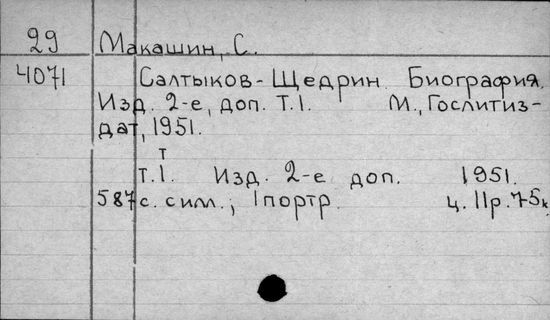 29 Макашин, С.
4071 Салтыков-Щедрин. Биография.
Изд. 2-е, доп. Т.1. М., Гослитиз-
дат, 1951.
т
Т.1. Изд. 2-е доп. 1951.
587 с. с илл.; 1 портр. ц. 11р. 75к.